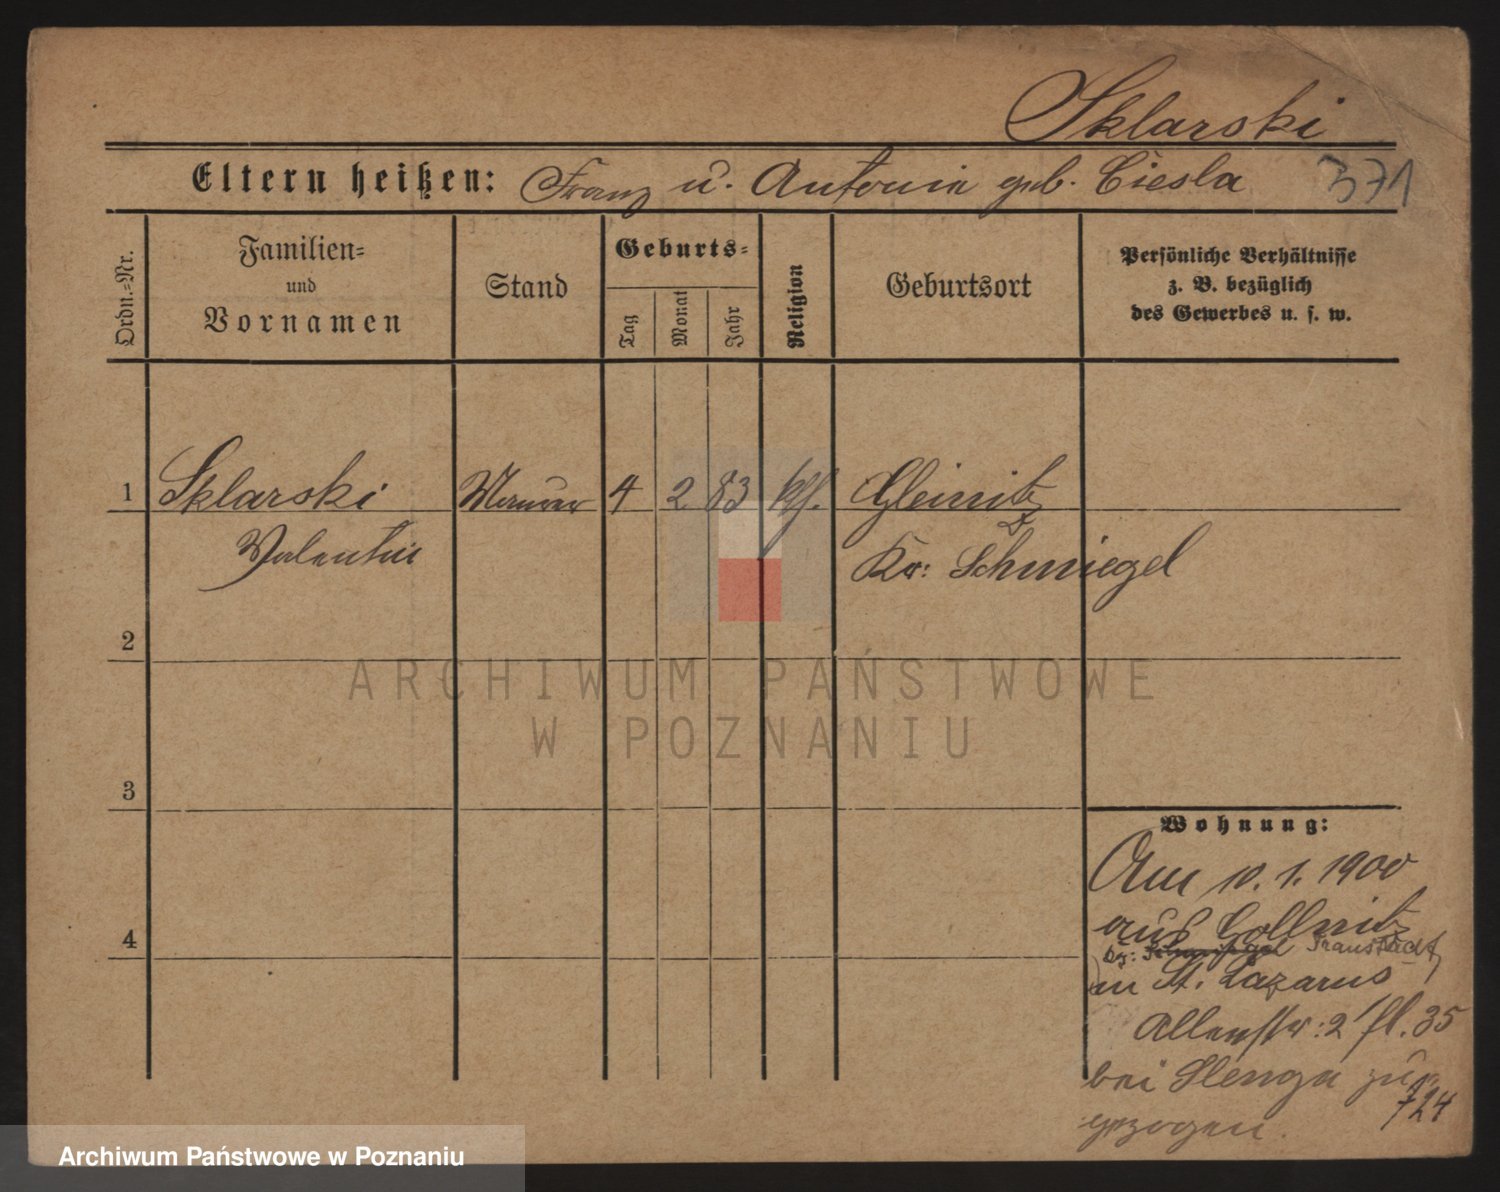 Sklarski
Eltern heißen: Franz u. Antonia geb. Ciesla 371
Ordn.-Nr.
Familien-
und
Vornamen
Stand
Geburts-
Tag
Monat
Jahr
Religion
Geburtsort
Persönliche Verhältnisse
z. B. bezüglich
des Gewerbes u. s. w.
1 Sklarski Maurer 4 2 83 kth. Gleinitz
Valentin Kr: Schmiegel
2
3
4
Wohnung:
Am 10. 1. 1900
aus Gollnitz
Kr: Schmiegel Fraustadt
in St. Lazarus
Allenstr: 2 pl. 35
bei Slenga zu
724
gezogen.
ARCHIWUM PAŃSTWOWE
W POZNANIU
Archiwum Państwowe w Poznaniu